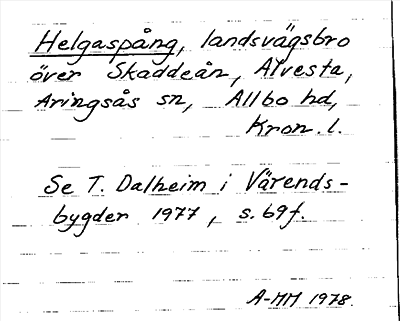 Helgaspång, landsvägsbro
över Skaddeån, Alvesta,
Aringsås sn, Allbo hd,
Kron. l.
Se T. Dalheim i Värends-
bygder 1977, s. 69f.
A-MM 1978.